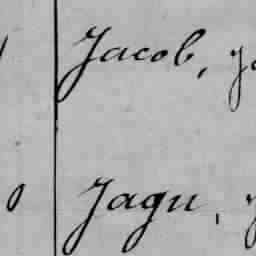 Jacob,
Jagu,